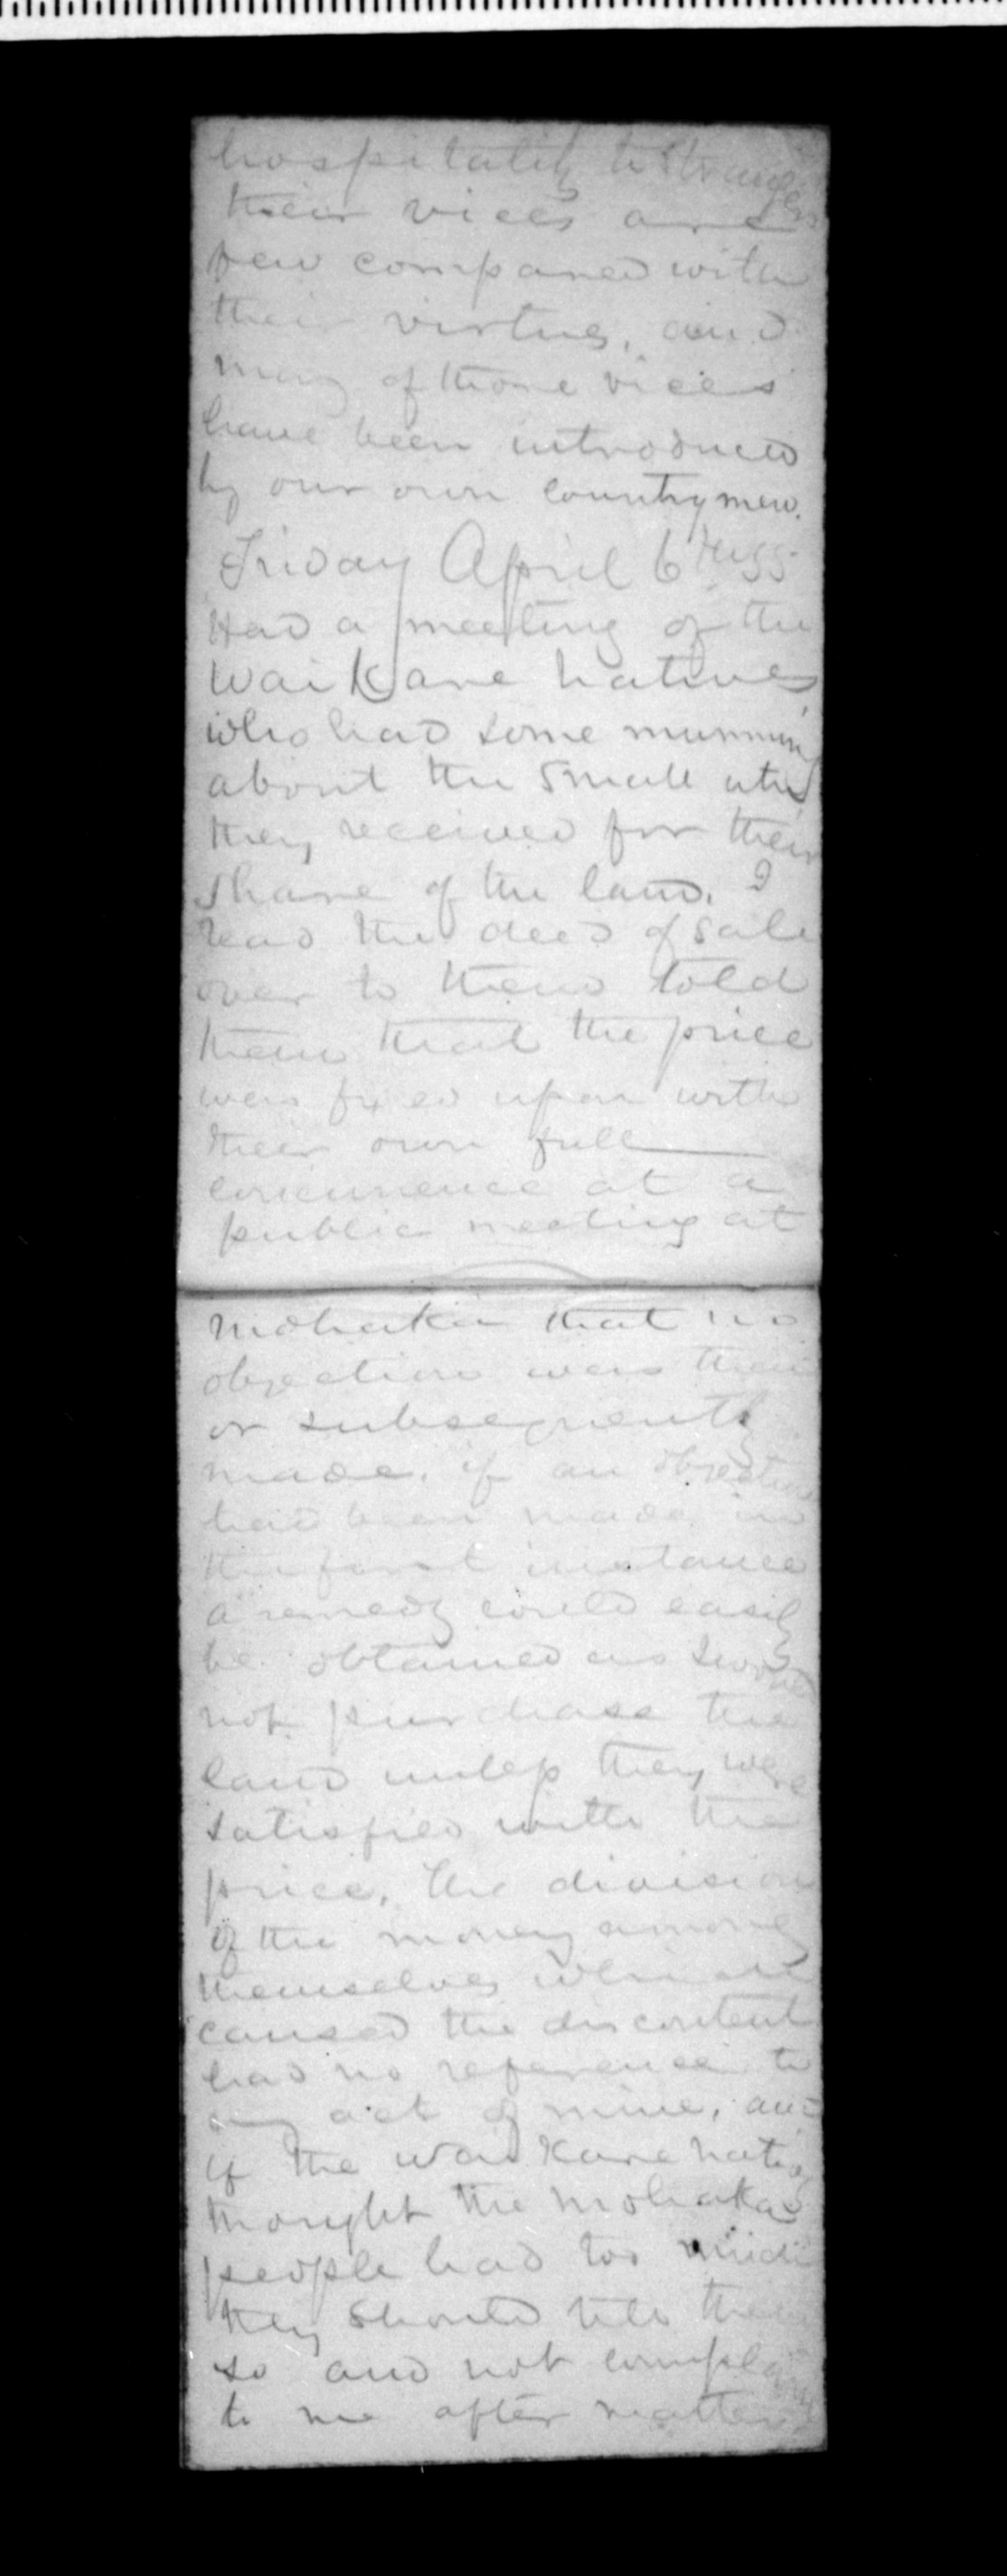 hospitality to Strangers
their vices are
few compared with
their virtues, and
many of those vices
have been introduced
by our own countrymen.
Friday April 6th 1855
Had a meeting of the
Waikare natives
who had some murmuring
about the small utu
they received for their
share of the land. I
read the deed of sale
over to them told
them that the price
was fixed upon with
their own full
concurrence at a
public meeting at
Mohaka that no
objection was then
or subsequently
made. if an objection
had been made in
the first instance
a remedy could easily
be obtained as I would
not purchase the
land unless they were
satisfied with the
price. The division
of the money among
themselves which
caused the discontent
had no reference to
any act of mine, and
if the Waikare natives
thought the Mohaka
people had too much
they should tell them
so and not complain
to me after matters